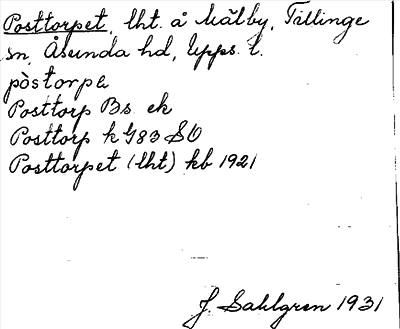 Posttorpet, lht. å Målby, Tillinge
sn, Åsunda hd, Upps. l.
pòstorpe
Posttorp Bs. ek
Posttorp k G83 SO
Posttorpet (lht) kb 1921
J. Sahlgren 1931